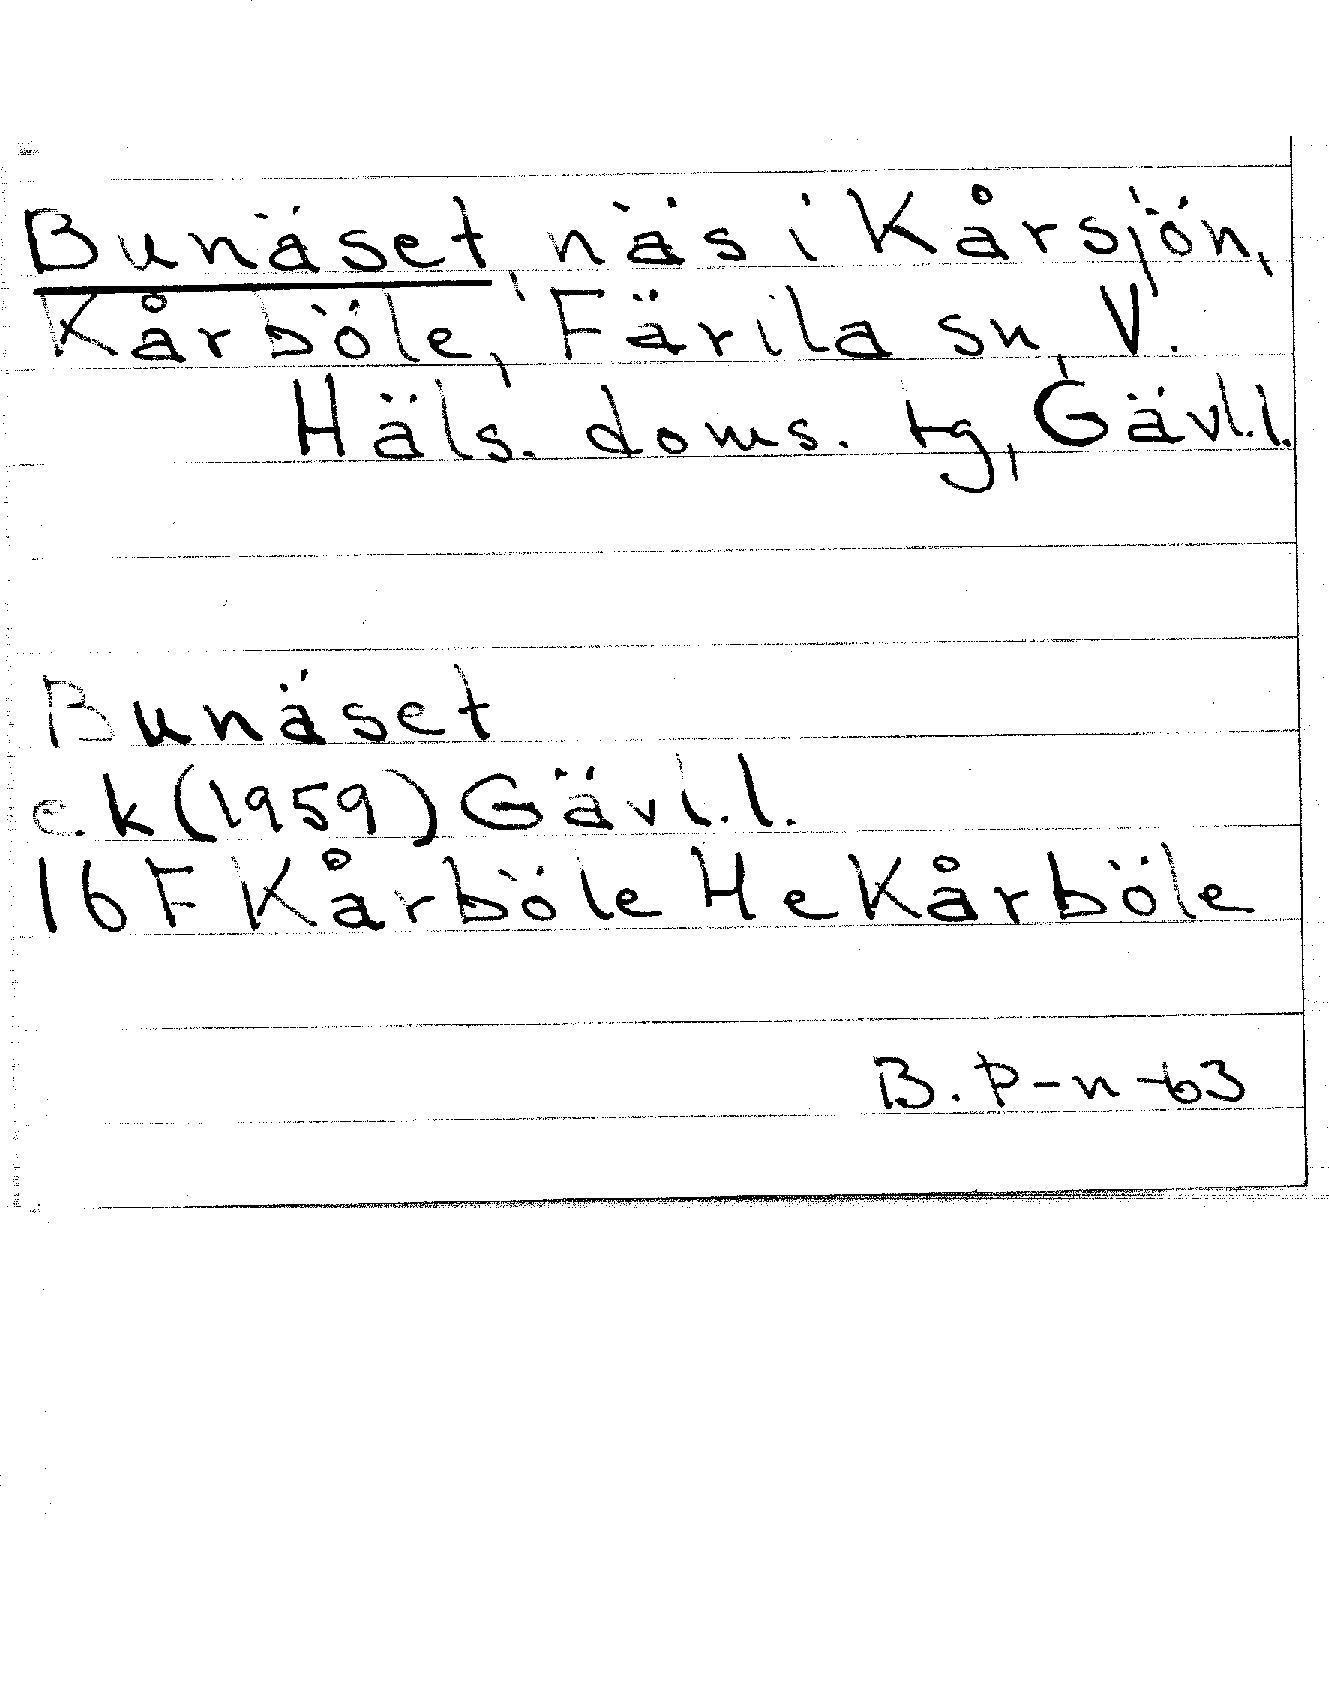 Bunäset, näs i Kårsjön,
Kårböle, Färila sn, V.
Häls. doms. tg, Gävl.l.
Bunäset
e.k (1959) Gävl.l.
16 F Kårböle He Kårböle
B. P-n -63